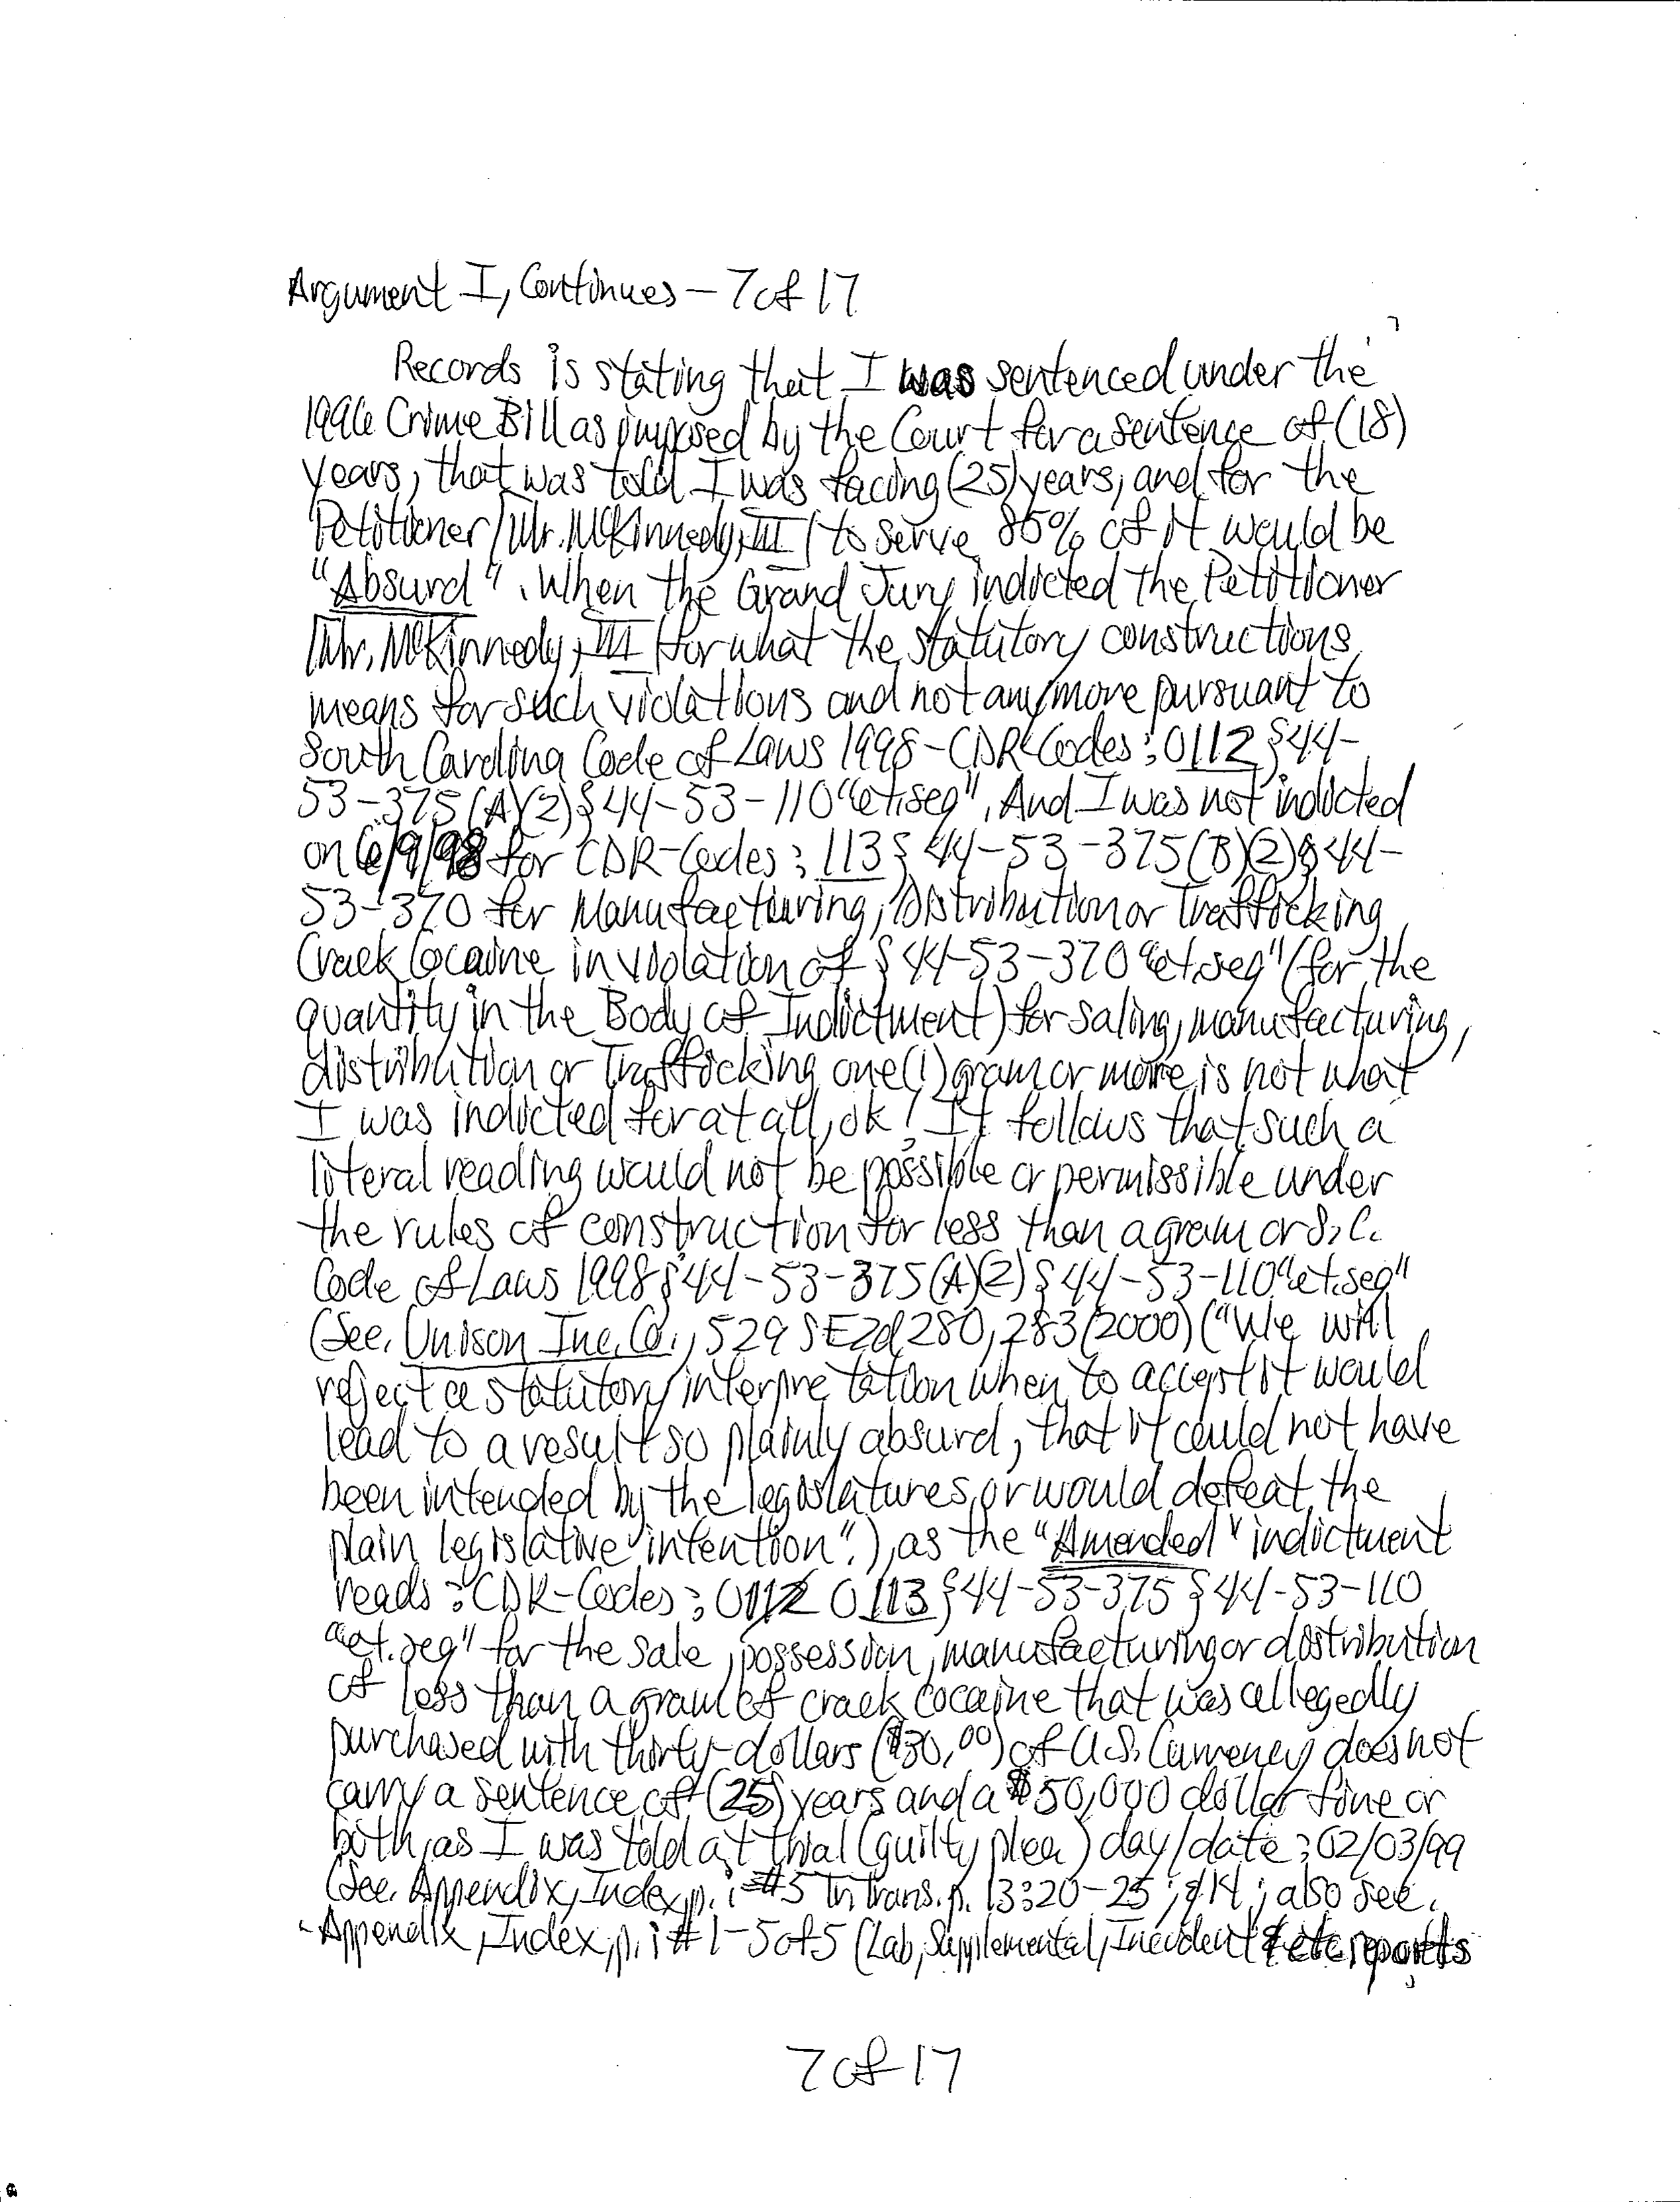 Argument I, Continues – 7 of 17
Records is stating that I was sentenced under the
1996 Crime Bill as imposed by the Court for a sentence of (18)
years, that was told I was facing (25) years, and for the
Petitioner/Mr. McKinnedy, III/ to serve 85% of it would be
"Absurd". When the Grand Jury indicted the Petitioner
/Mr. McKinnedy, III/ for what the statutory constructions
means for such violations and not any more pursuant to
South Carolina Code of Laws 1998 – CDR-Codes: 0112 § 44-
53-375 (A)(2) § 44-53-110 "et. seq", And I was not indicted
on 6/9/98 for CDR-Codes: 113 § 44-53-375 (B)(2) § 44-
53-370 for Manufacturing, Distribution or Trafficking
Crack Cocaine in violation of § 44-53-370 "et. seq" (for the
quantity in the Body of Indictment) for saling, manufacturing,
distribution or Trafficking one (1) gram or more, is not what
I was indicted for at all, ok! It follows that such a
literal reading would not be possible or permissible under
the rules of construction for less than a gram or S.C.
Code of Laws 1998 § 44-53-375 (A)(2) § 44-53-110 "et. seq"
(See, Unison Inc. Co., 529 SE2d 280, 283 (2000) ("We will
reject a statutory interpretation when to accept it would
lead to a result so plainly absurd, that it could not have
been intended by the legislatures, or would defeat the
plain legislative intention".), as the "Amended" indictment
reads: CDR-Codes: 0112 0113 § 44-53-375 § 44-53-110
"et. seq" for the sale, possession, manufacturing or distribution
of less than a gram of crack cocaine that was allegedly
purchased with thirty-dollars ($30.00) of U.S. Currency does not
carry a sentence of (25) years and a $50,000 dollar fine or
both, as I was told at trial (guilty plea) day/date: 02/03/99
(See. Appendix, Index, p. i #5 Tr. Trans. p. 13:20-25; & 14; also see.
- Appendix, Index, p. i # 1-5 of 5 (Lab, Supplemental, Incident & etc reports
7 of 17